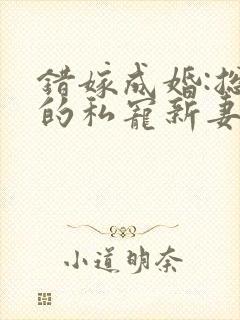 錯嫁成婚:
的私寵新妻
小道明奈